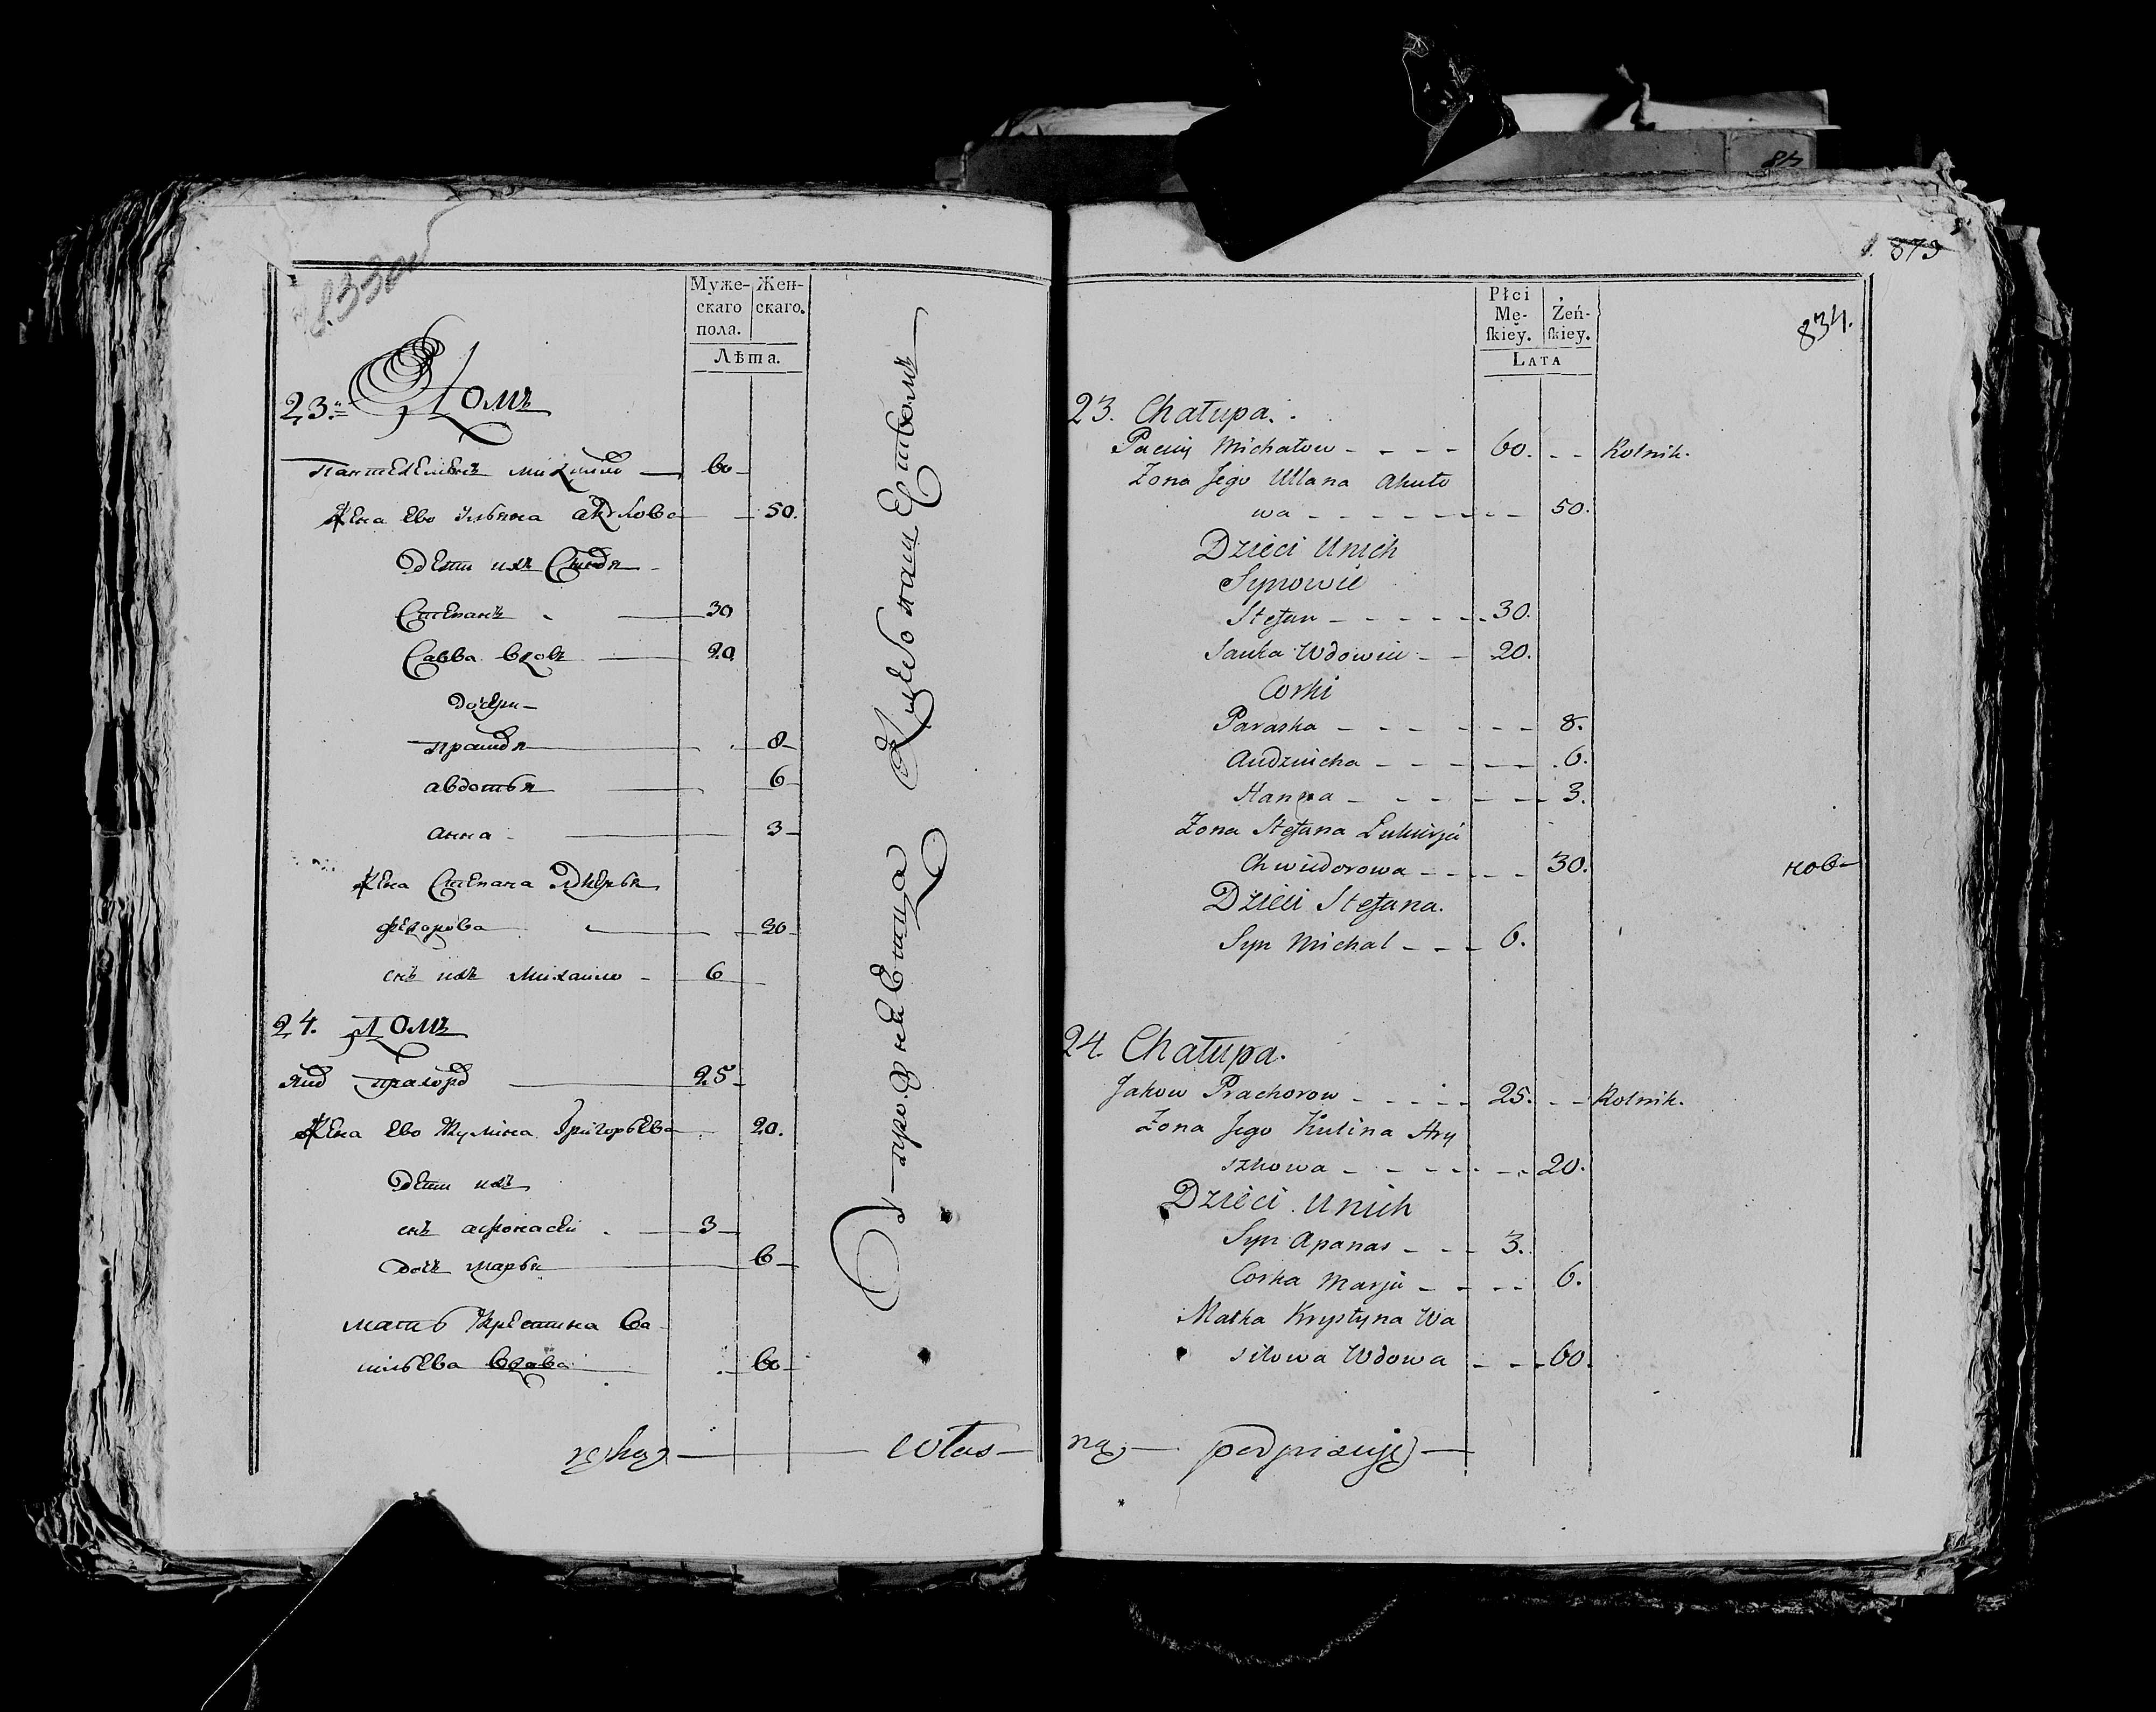 833 об
Муже-
скаго
пола.
Жен-
скаго.
Лѣта.
23. Домъ
Пантелемонъ Михаилов 60
Жена Ево Ульяна Акулова 50.
Дети ихъ Сыновья
Степанъ 30
Савва вдовъ 20
дочери
Прасковья 8
Авдотья 6
Анна 3
Жена Степана Лукерья
Федорова 30
снъ ихъ Михайло 6
24. Домъ
Яков Прахоров 25
Жена Ево Кулина Григорьева 20.
Дети ихъ
снъ Афонасей 3
дочь Марья 6
мать Крестина Ва
сильева вдова 60
ręką włas
873
834.
Płci
Mę-
ſkiey.
Żeń-
ſkiey.
LATA
23. Chałupa.
Michałow 60. Rolnik.
Zona Jego Ullana Akuło
wa 50.
Dzieci Unich
Synowie
Stefan 30.
Sauka Wdowiec 20.
Corki
Paraska 8.
Audziucha 6.
Hanna 3.
Zona Stefana Łukirja
Chwiedorowa 30.
нов
Dzieci Stefana.
Syn Michał 6.
24. Chałupa.
Jakow Prachorow 25. Rolnik.
Zona Jego Kulina Hry
szkowa 20.
Dzieci Unich
Syn Apanas 3.
Corka Marja 6.
Matka Krystyna Wa
siłowa Wdowa 60.
ną podpisuję